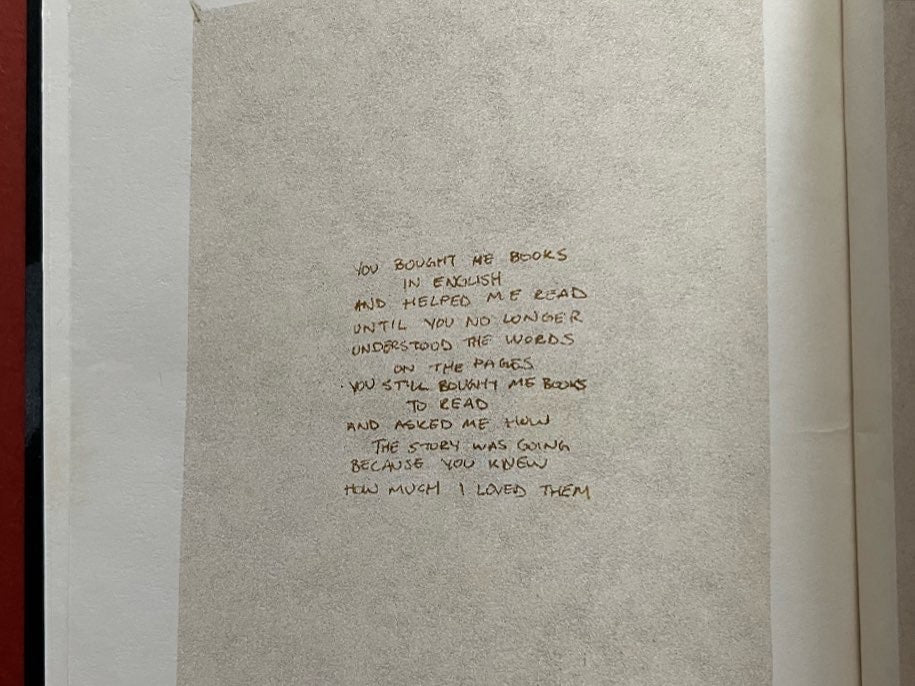 YOU BOUGHT ME BOOKS
IN ENGLISH
AND HELPED ME READ
UNTIL YOU NO LONGER
UNDERSTOOD THE WORDS
ON THE PAGES
YOU STILL BOUGHT ME BOOKS
TO READ
AND ASKED ME HOW
THE STORY WAS GOING
BECAUSE YOU KNEW
HOW MUCH I LOVED THEM